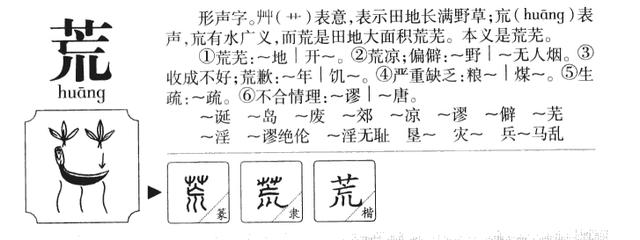 荒
huāng
形声字。艸(艹)表意,表示田地长满野草;㠩(huāng)表
声,㠩有水广义,而荒是田地大面积荒芜。本义是荒芜。
①荒芜:~地|开~。②荒凉;偏僻:~野|~无人烟。③
收成不好;荒歉:~年|饥~。④严重缺乏:粮~|煤~。⑤生
疏:~疏。⑥不合情理:~谬|~唐。
~诞 ~岛 ~废 ~郊 ~凉 ~谬 ~僻 ~芜
~淫 ~谬绝伦 ~淫无耻 垦~ 灾~ 兵~马乱
荒 篆 荒 隶 荒 楷